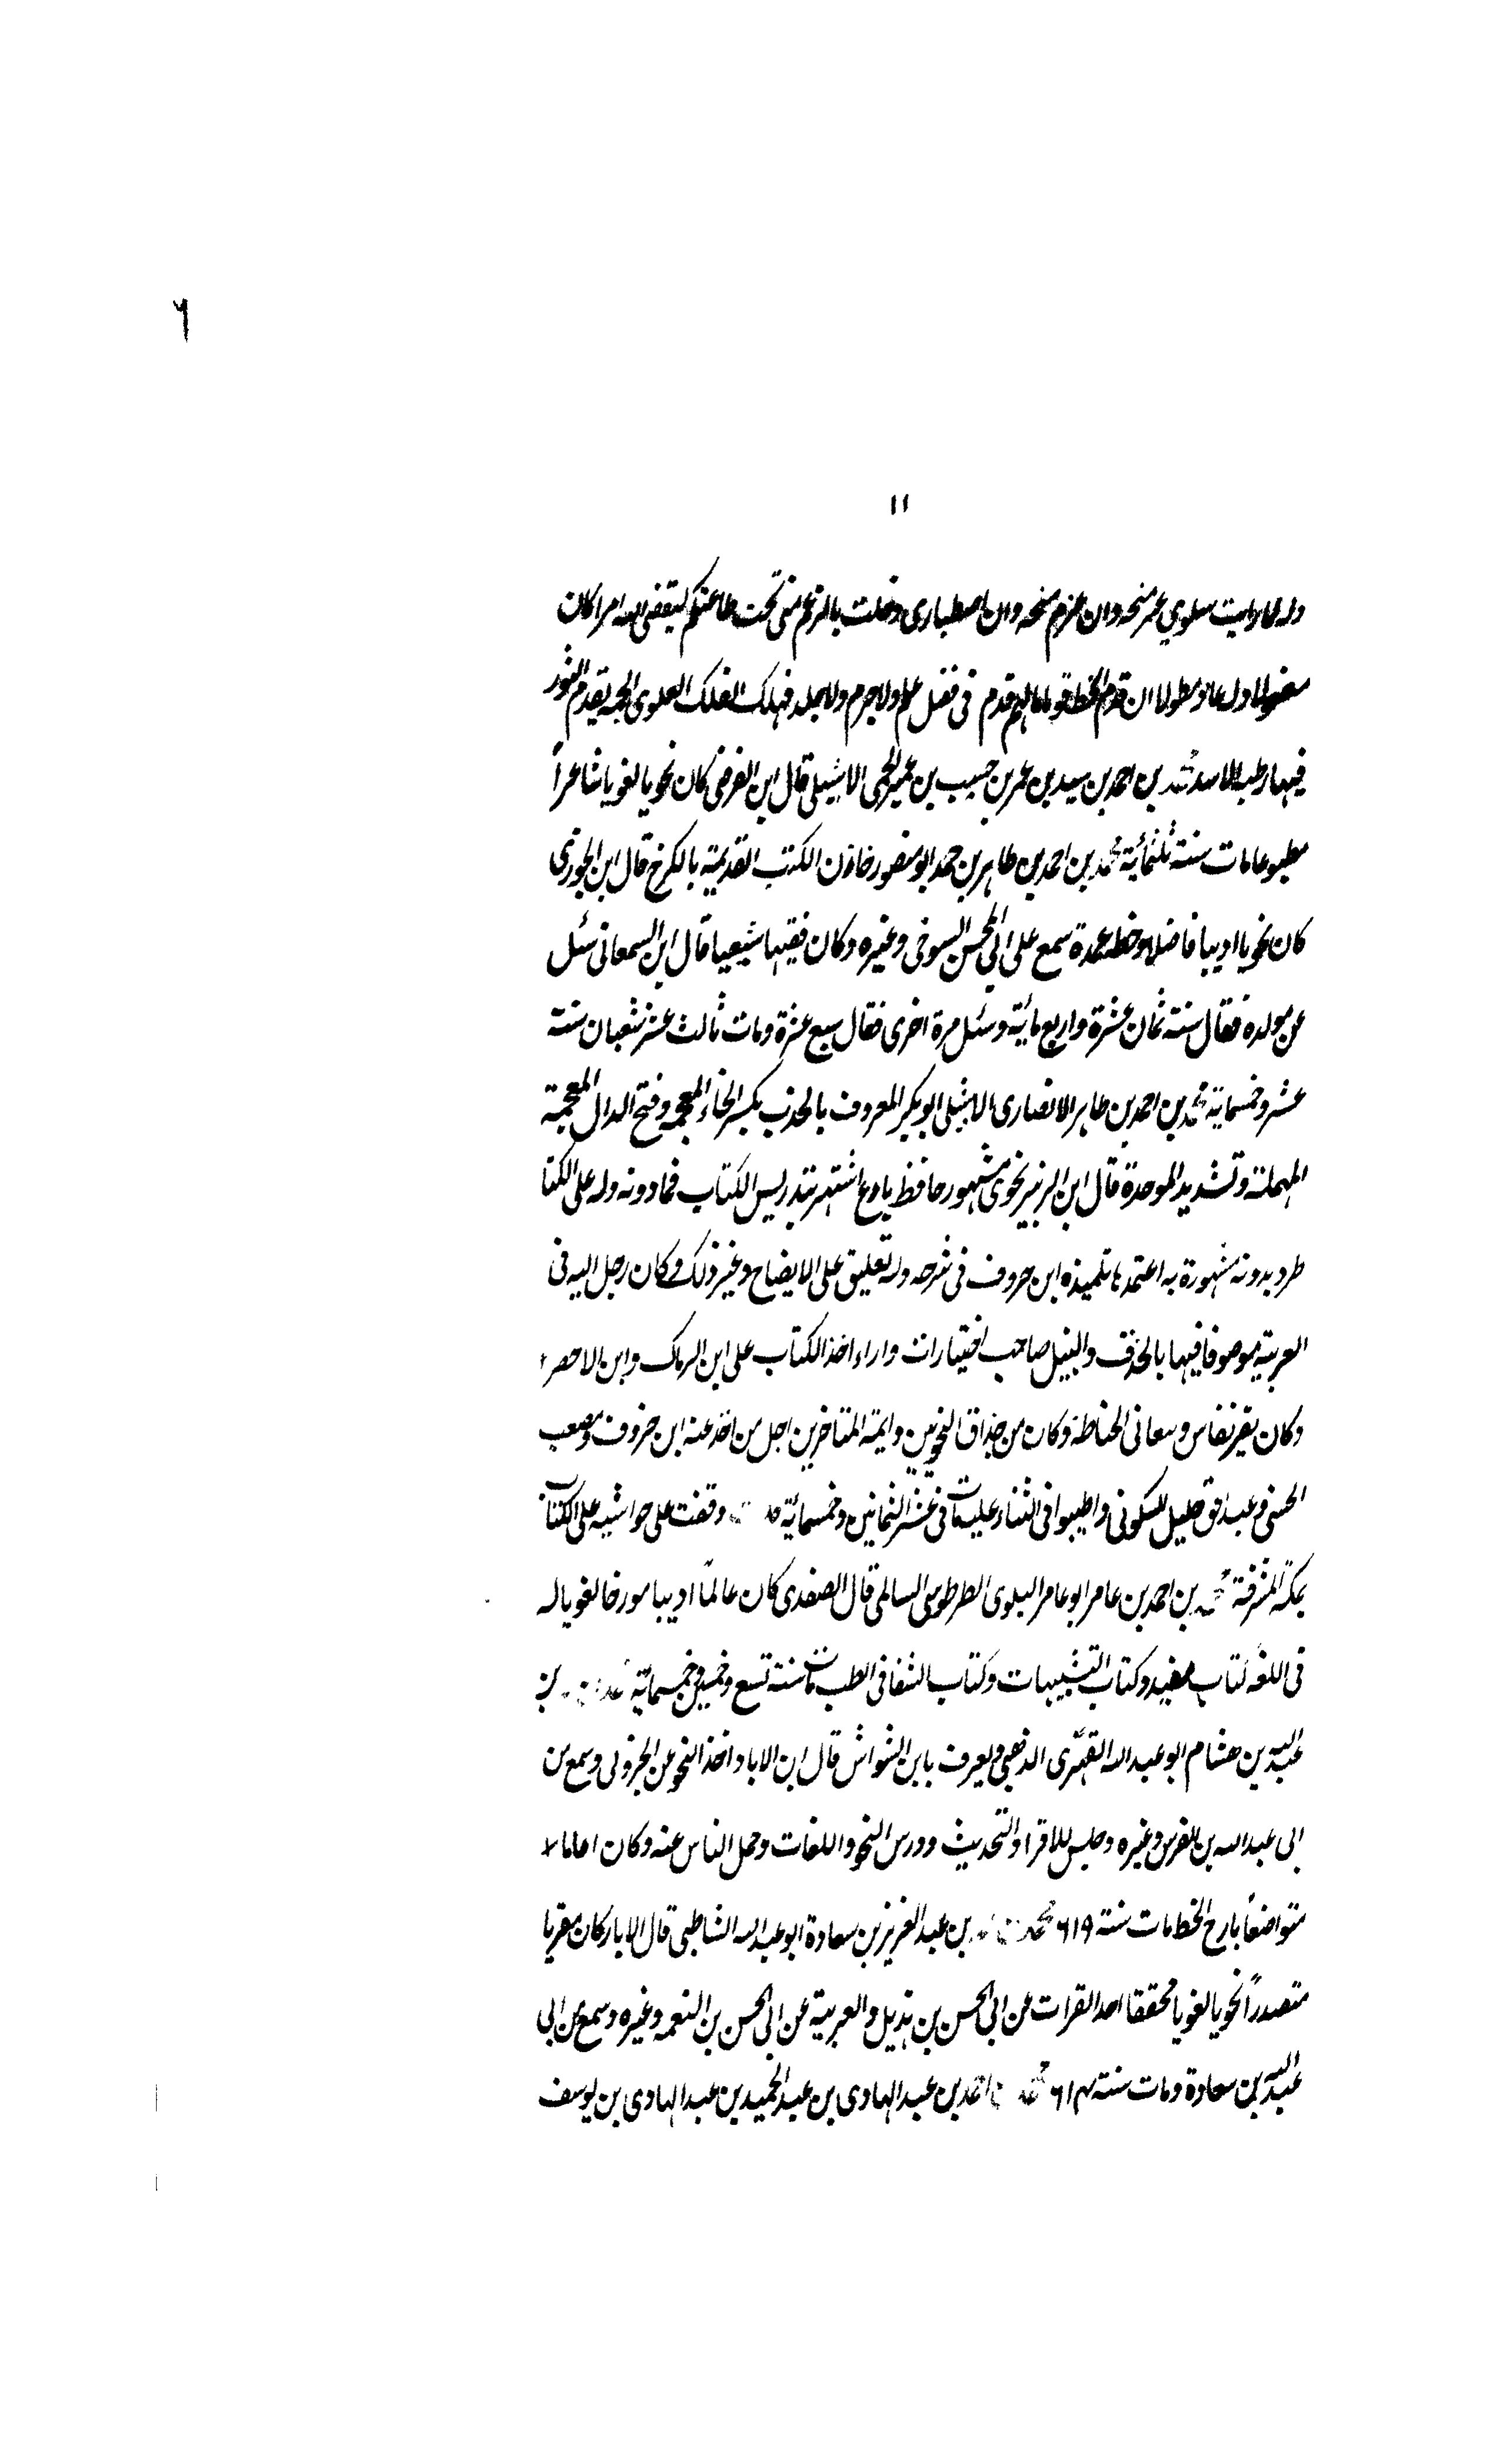 ٦
١١
وله لما رايت سلوي عز منحه وان عزم منحه وان اصطباری دخلت بالرغم منی تحت طاعتكم ليقضی الله امرا كان
مفعولا وله عاتو مطولا ان قدم الخط قوما ما لهم قدم فی فضل علم ولا جرم ولا جلد فهلك الفلك العلوی الجه يقدم الثور
فيها رطب الاسد محمد بن احمد بن سيد بن عمر بن حبيب بن عمير الخمی الاشبيلی قال ابن الفرضی كان نحويا لغويا شاعراً
مطبوعا مات سنة ثلثمائة محمد بن احمد بن طاہر بن حمد ابو منصور خازن الكتب القديمة بالكرخ قال ابن الجوزی
كان نحويا اديبا فاضلا وخطه عمدة سمع علی ابی الحسن السوخی وغيره وكان فقيها شيعيا قال ابن السمعانی سئل
عن مولده فقال سنة ثمان عشرة واربع مائة وسئل مرة اخری فقال سبع عشرة ومات ثالث عشر شعبان سنة
عشر وخمسماية محمد بن احمد بن طاہر الانصاری الاشبلی ابوبكر المعروف بالخدب بكسر الخاء المعجمه وفتح الدال المعجمة
المهملة وتشديد الموحدة قال ابن الزبير نحوی مشهور حافظ بارع اشتهر بتدريس الكتاب فما دونه وله علی الكتا
طرد بدونه مشهورة به اعتمدها تلميذه ابن خروف فی شرحه وله تعليق علی الايضاح وغير ذلك وكان رجل اليه فی
العربية موصوفا فيها بالحذق والنبيل صاحب اختيارات واراء اخذ الكتاب علی ابن الرماك وابن الاحصر
وكان يقر نفاس ومعانی الخناطة وكان من حذاق النحويين وايمة المتاخرين اجل من اخذ عنه ابن خروف ومصعب
الحسنی وعبد الحق خليل السكونی واطيبوا فی الثناء عليه مات فی عشر الثمانين وخمسمائة وقفت علی حواشيه علی الكتاب
بمكة المشرفة محمد بن احمد بن عامر ابو عامر البلوی الطرطوسی السالمی قال الصفدی كان عالماً اديبا مورخا لغويا له
فی اللغة كتاب مفيد وكتاب التشبيهات وكتاب الشفا فی الطب مات سنة تسع وخمسين وخمسمائة محمد بن
عبد الله بن هشام ابو عبد الله القهری الذهبی ويعرف بابن الشواش قال ابن الاباد اخذ النحو عن الجزولی وسمع من
ابی عبد الله بن الفرس وغيره وجلس للاقرا والتحديث ودرس النحو واللغات وحمل الناس عنه وكان اماما لا
متواضعاً بارع الخط مات سنة ٦١٩ محمد بن عبد العزيز بن سعادة ابو عبد الله الشاطبی قال الابار كان مقريا
متصدراً نحويا لغويا محققا اخذ القرات عن ابی الحسن بن ہذيل والعربية عن ابی الحسن بن النعمه وغيره وسمع من ابی
عبد الله بن سعادة ومات سنة ٦١٤ محمد بن احمد بن عبد الهادی بن عبد الحميد بن عبد الهادی بن يوسف